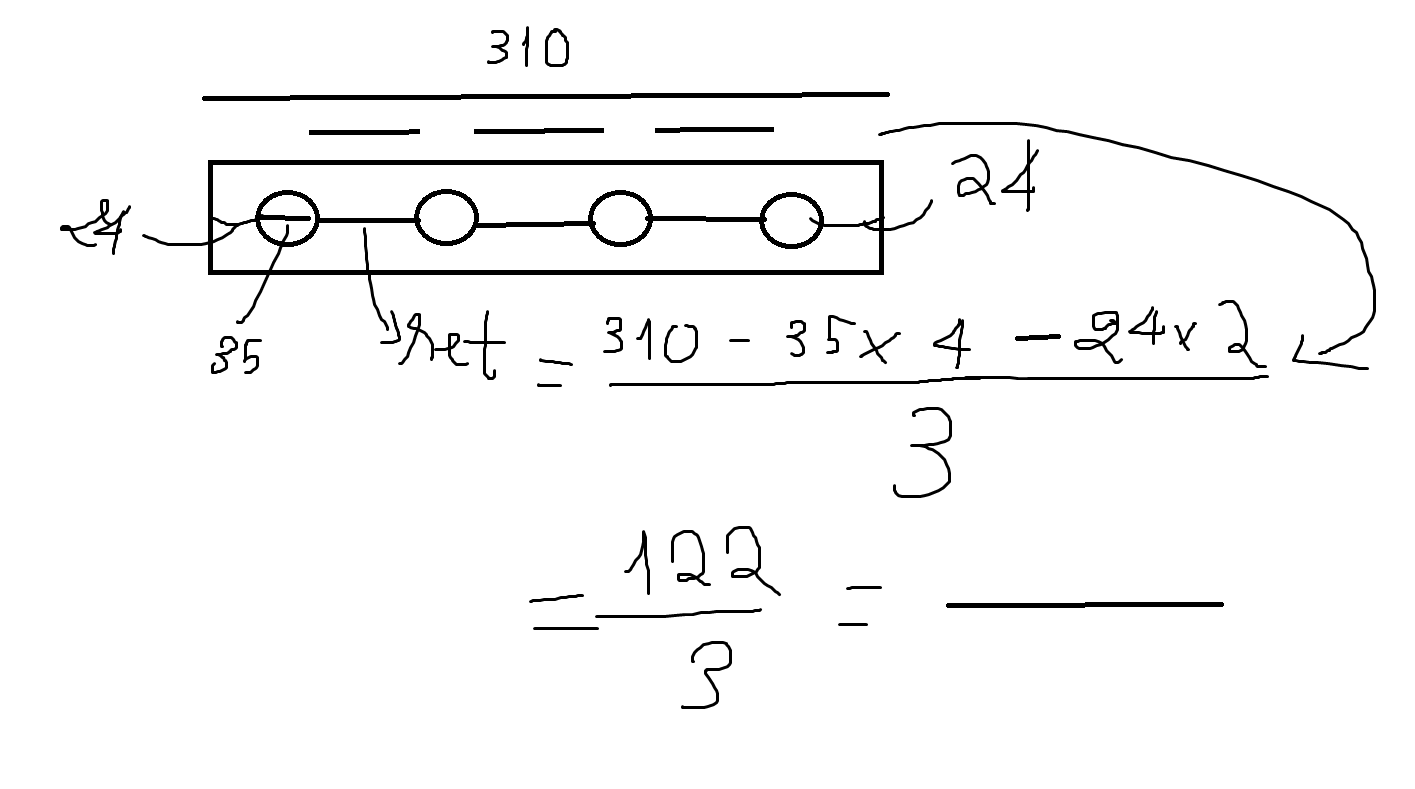 310
24
24
35
ret = 310 - 35 x 4 - 24 x 2
3
= 122 =
3